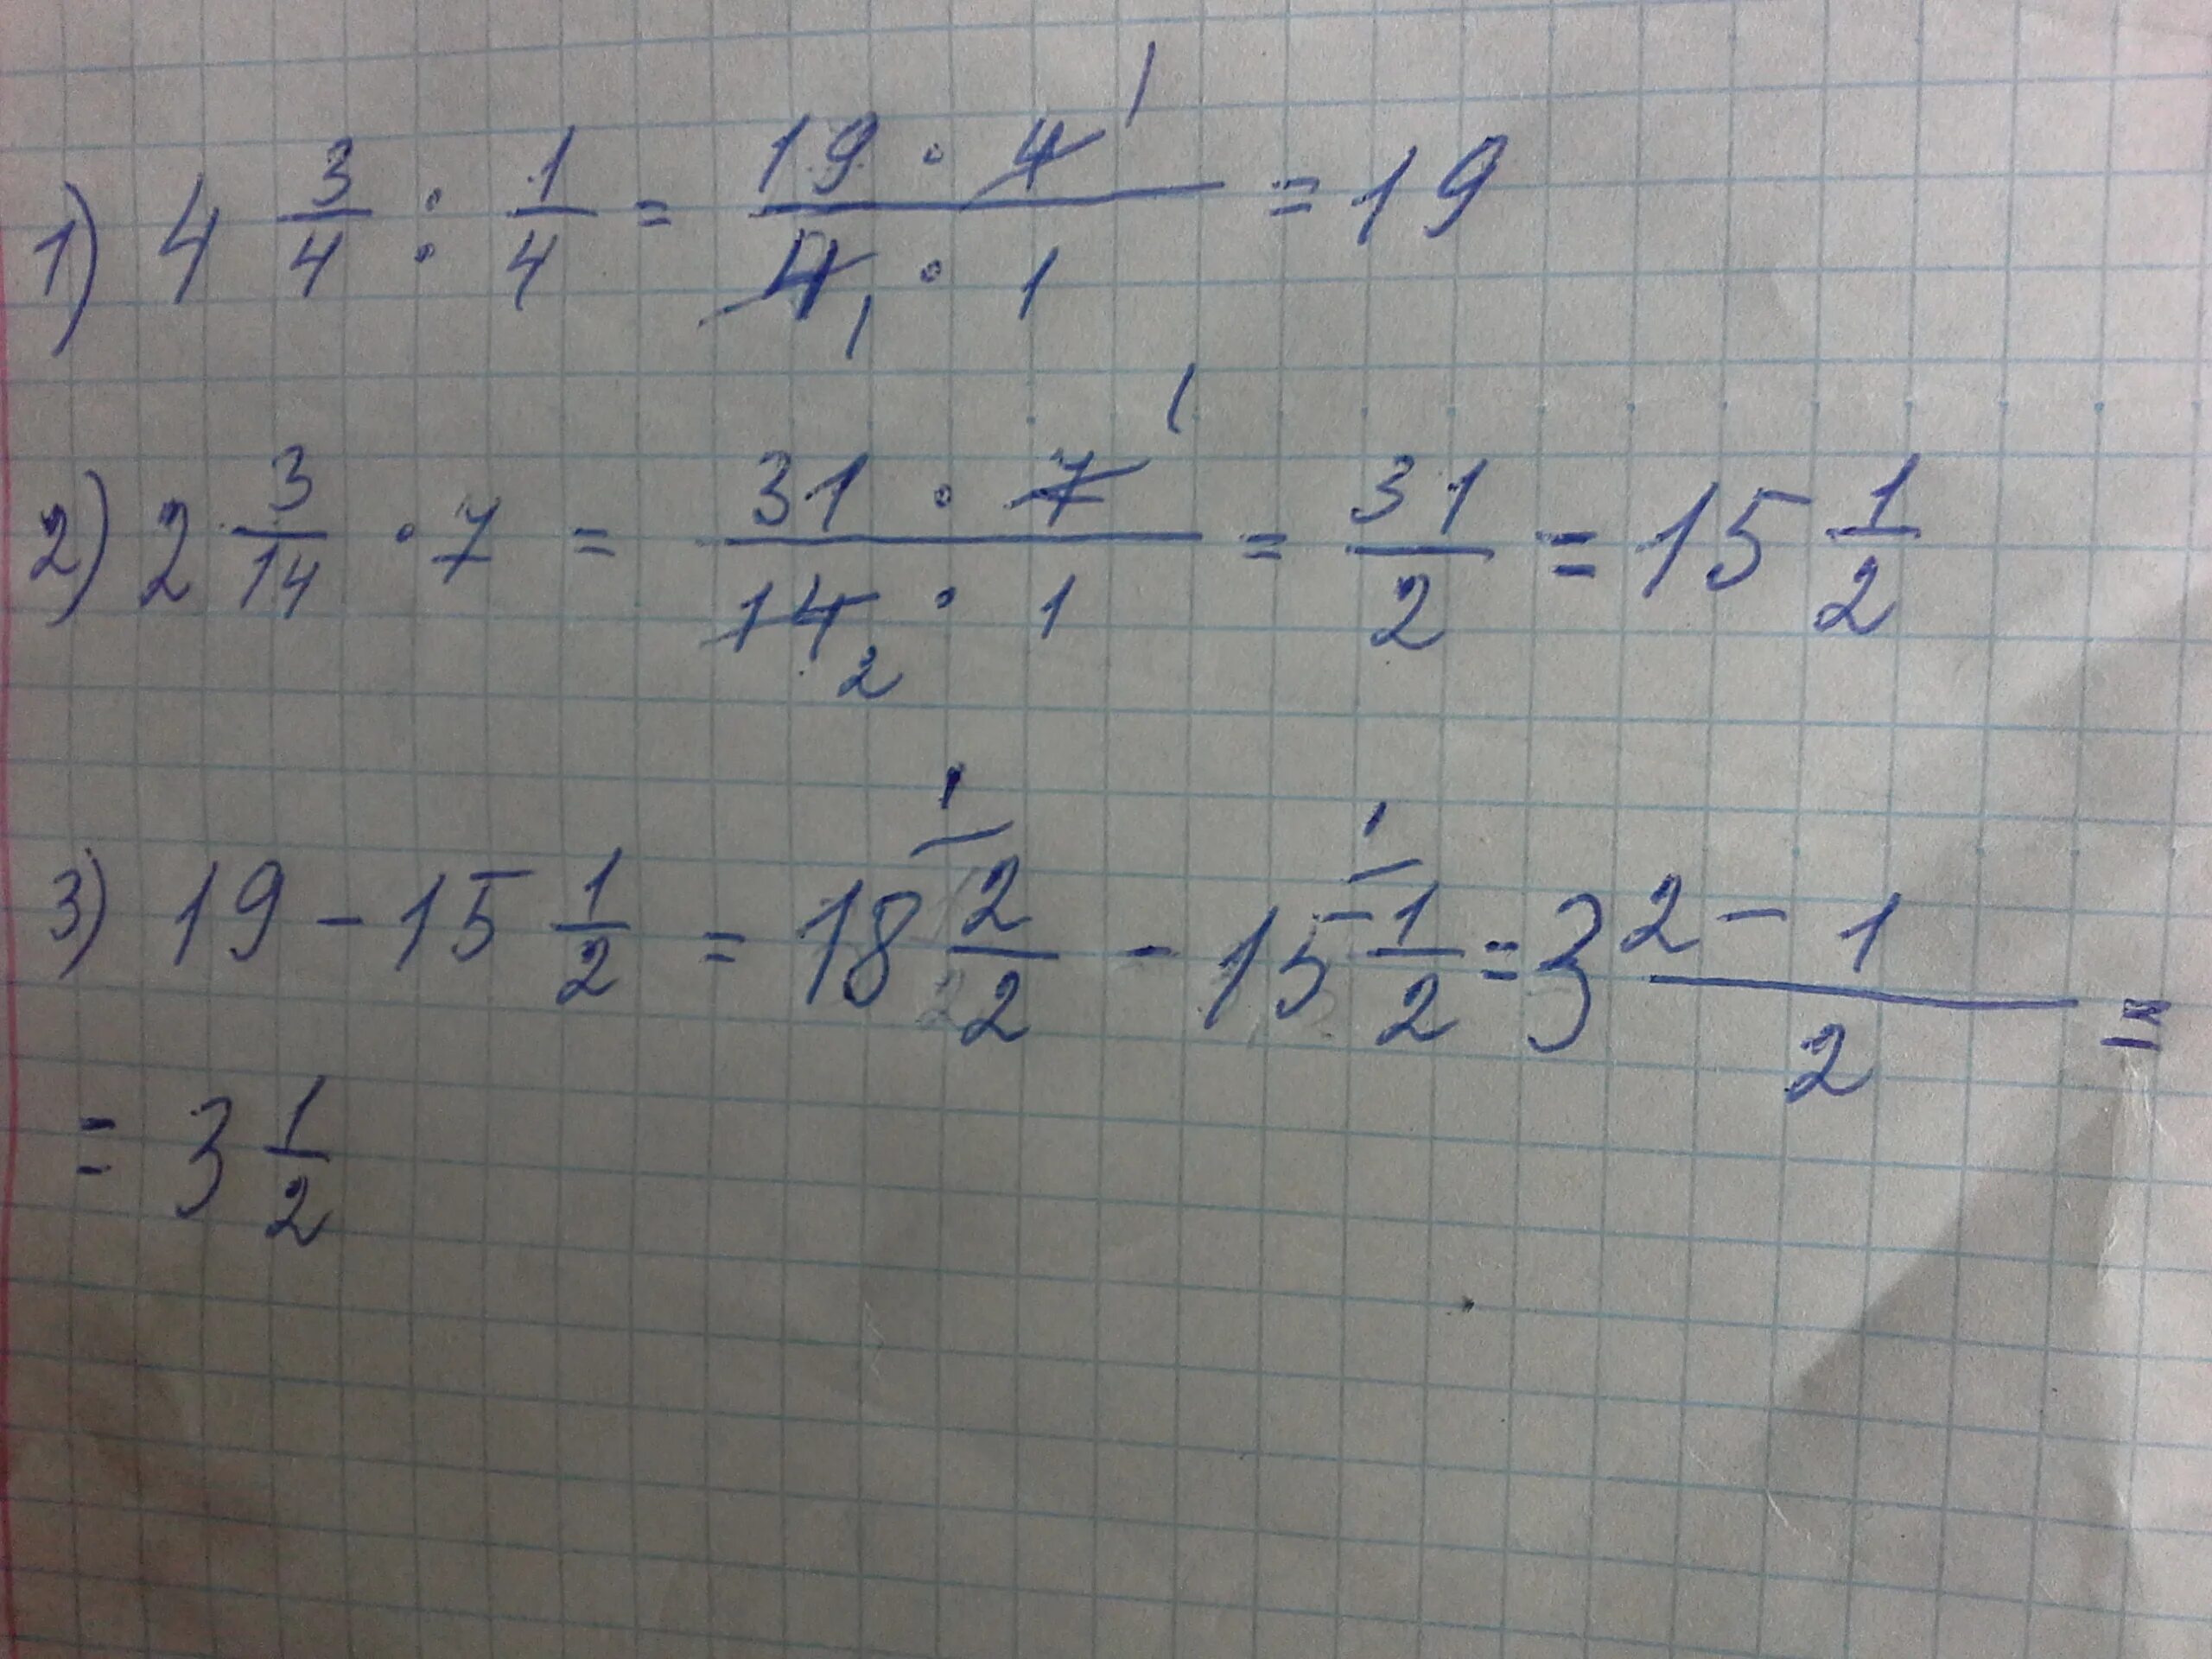 1) 4 3/4 : 1/4 = 19 · 4 1 / 4 1 · 1 = 19
2) 2 3/14 · 7 = 31 · 7 1 / 14 2 · 1 = 31/2 = 15 1/2
3) 19 - 15 1/2 = 18 1/ 2/2 - 15 1/ 1/2 = 3 2 - 1 / 2 =
= 3 1/2